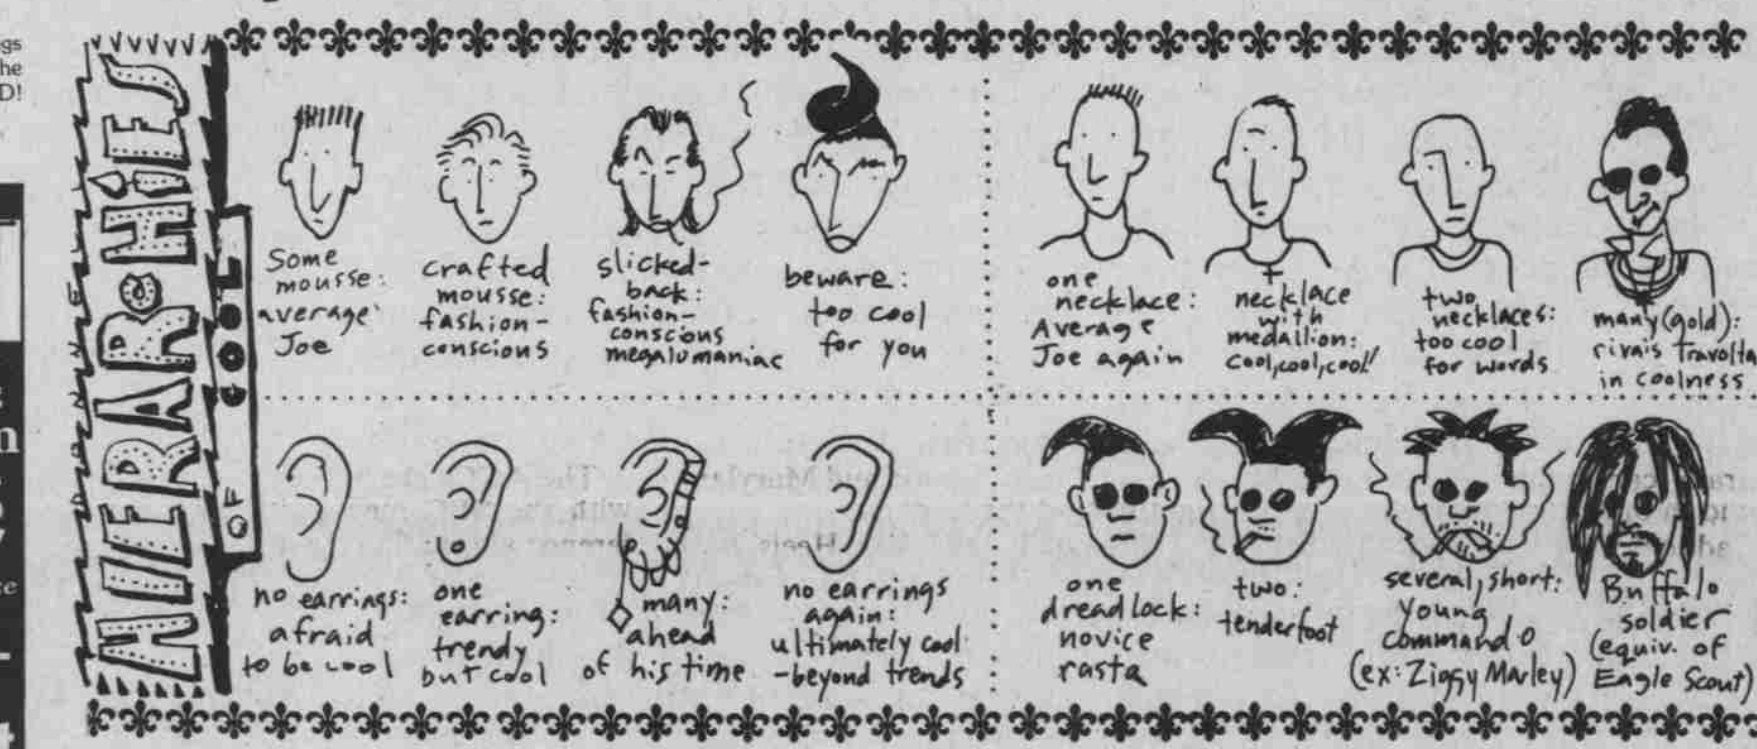 gs
he
D!
HIERARCHIES
OF COOL
Some
mousse:
average
Joe
crafted
mousse:
fashion-
conscious
slicked-
back:
fashion-
conscious
megalomaniac
beware:
too cool
for you
one
necklace:
Average
Joe again
necklace
with
medallion:
cool, cool, cool!
two
necklaces:
too cool
for words
many (gold):
rivals Travolta
in coolness
no earrings:
afraid
to be cool
one
earring:
trendy
but cool
many:
ahead
of his time
no earrings
again:
ultimately cool
-beyond trends
one
dreadlock:
novice
rasta
two:
tenderfoot
several, short:
young
commando
(ex: Ziggy Marley)
Buffalo
soldier
(equiv. of
Eagle Scout)